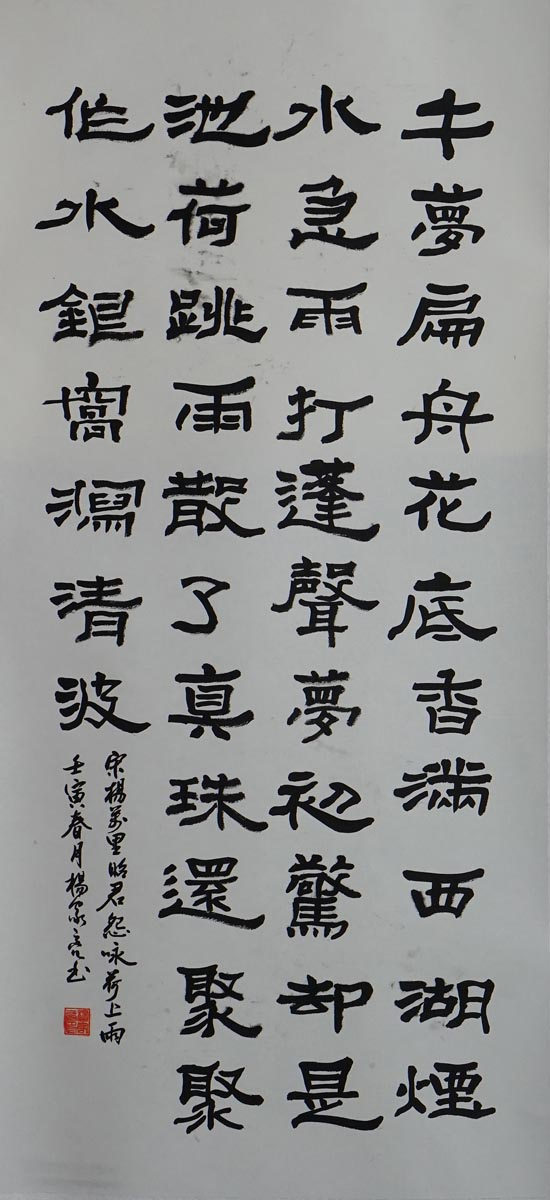 午夢扁舟花底香滿西湖煙
水急雨打蓬聲夢初驚却是
池荷跳雨散了真珠還聚聚
作水銀窩瀉清波
宋楊萬里昭君怨咏荷上雨
壬寅春月楊家书